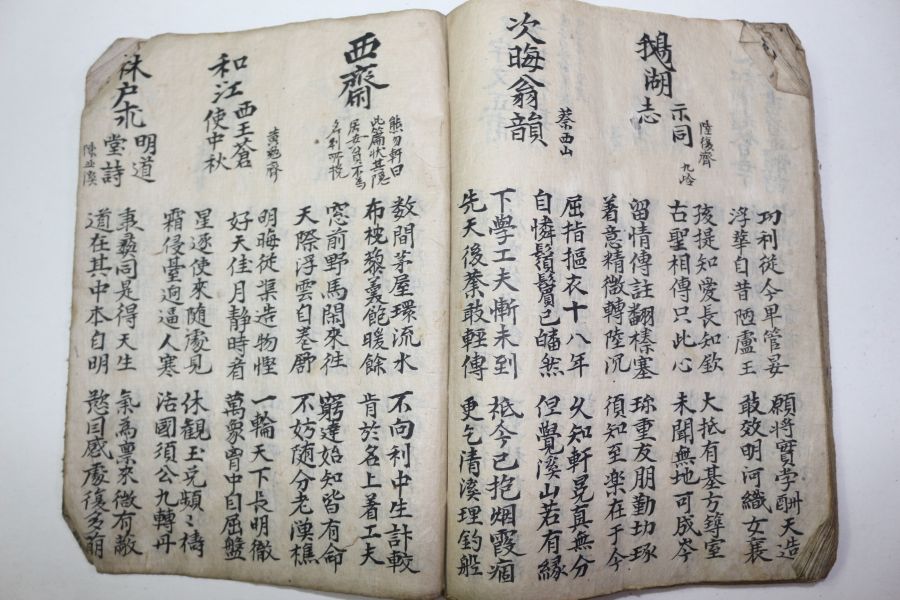 功利從今卑管晏 願將實學酬天造
浮華自昔陋盧王 敢效明河織女襄
鵝湖示同志 陸復齋 九岭
孩提知愛長知欽 大抵有基方築室
古聖相傳只此心 未聞無地可成岑
留情傳註翻榛塞 珎重友朋勤切琢
着意精微轉陸沉 須知至樂在于今
次晦翁韻 蔡西山
屈指摳衣十八年 久知軒冕真無分
自憐鬚鬢已皤然 但覺溪山若有緣
下學工夫漸未到 祗今已抱烟霞痼
先天後蔡敢輕傳 更乞清溪理釣船
西齋
熊勿軒曰
此篇狀其隱
居安貧不為
名利所撓
数間茅屋環流水 不向利中生計較
布枕藜羹飽暖餘 肯於名上着工夫
窓前野馬閑來往 窮達始知皆有命
天際浮雲自卷舒 不妨随分老漁樵
和江西王蒼使中秋 黄勉齋
明晦從渠造物慳 一輪天下長明徹
好天佳月静時看 萬象胷中自屈盤
星逐使來随處見 休觀玉兔頻〻禱
霜侵臺逈逼人寒 活國須公九轉丹
林户求明道堂詩 陳北溪
秉彜同是得天生 氣為禀來微有敝
道在其中本自明 慾因感處復多萠